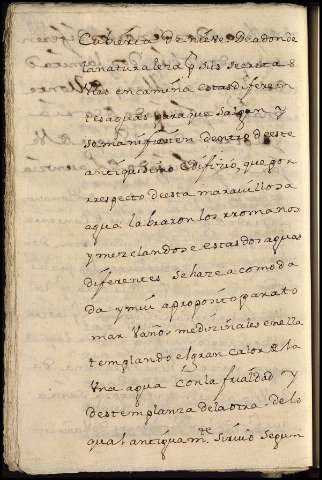 Cubierta de nieve De adonde
la naturaleza p sus secretas
vias encamina estas diferen
tes aguas para que salgan y
se manifiesten dentro deeste
antiquissimo edifizio, que por
rrespecto deesta maravillosa
agua labraron los rromanos
y mezclandose estas dos aguas
diferentes se haze acomoda
da y muy aproposito para to
mar vaños medizinales en ella
templando el gran calor de la
vna agua con la frialdad y
destemplanza de la otra. de lo
qual antiguam.te sirvio segun